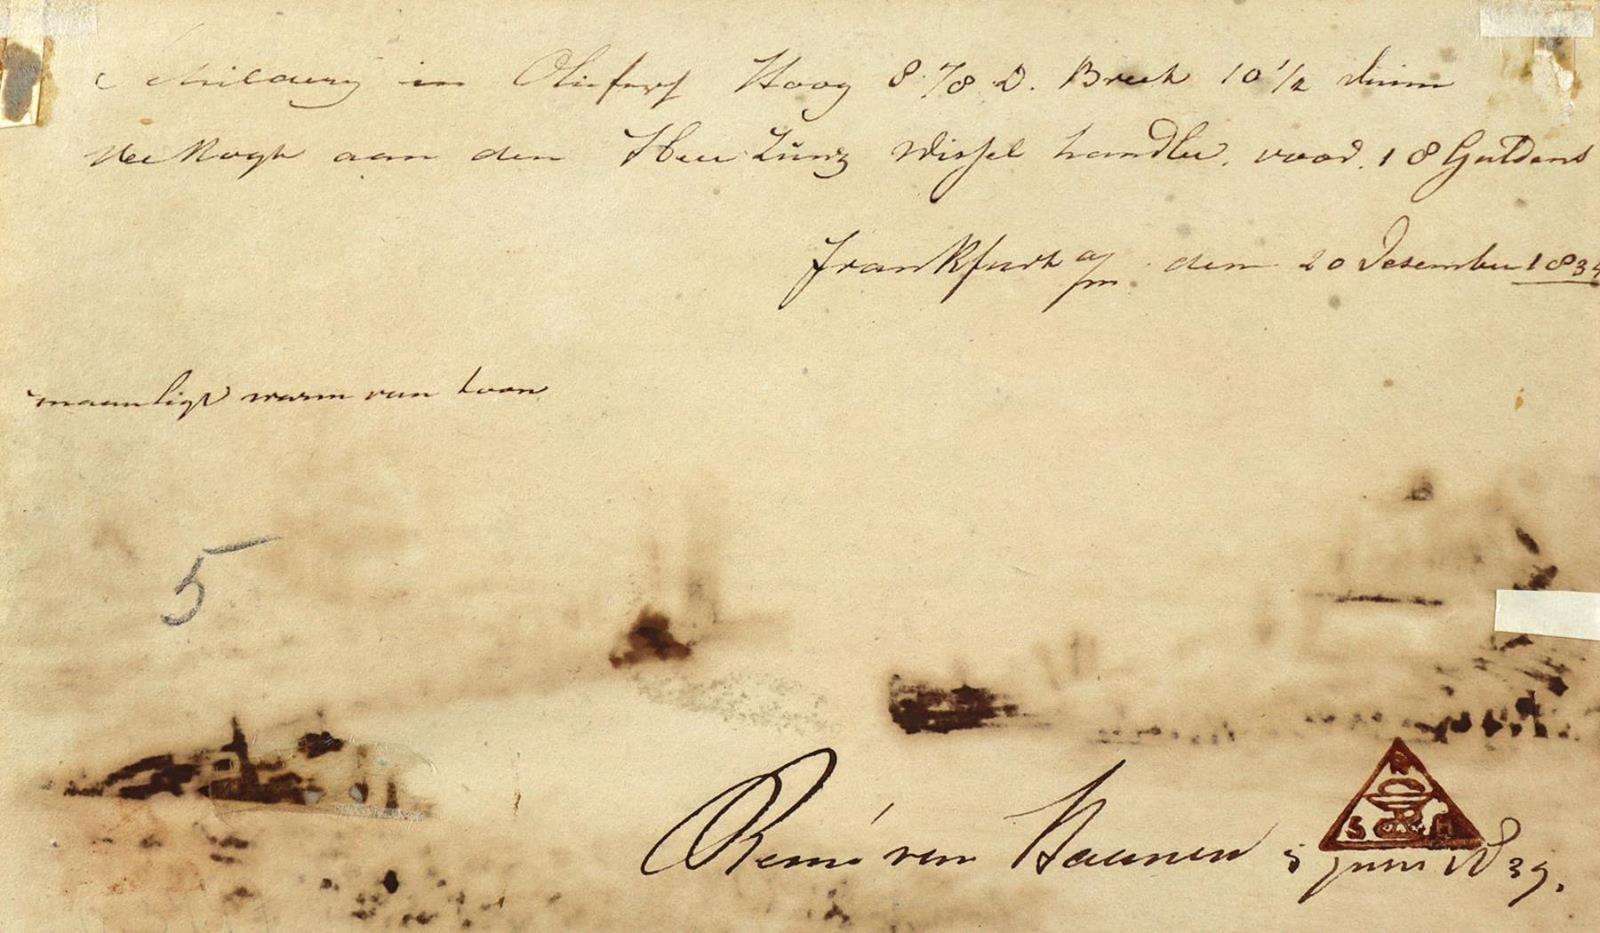 Schildery in Olieferf Hoog 8 7/8 D. Breet 10 1/2 duim
verkogt aan den Heer Zünz Wissel handler. voor. 18 Guldens
Frankfurt a/m den 20 Desember 1834
maanligt warm van toon
5
Remi van Haanen 5 juni 1839.
R
S H